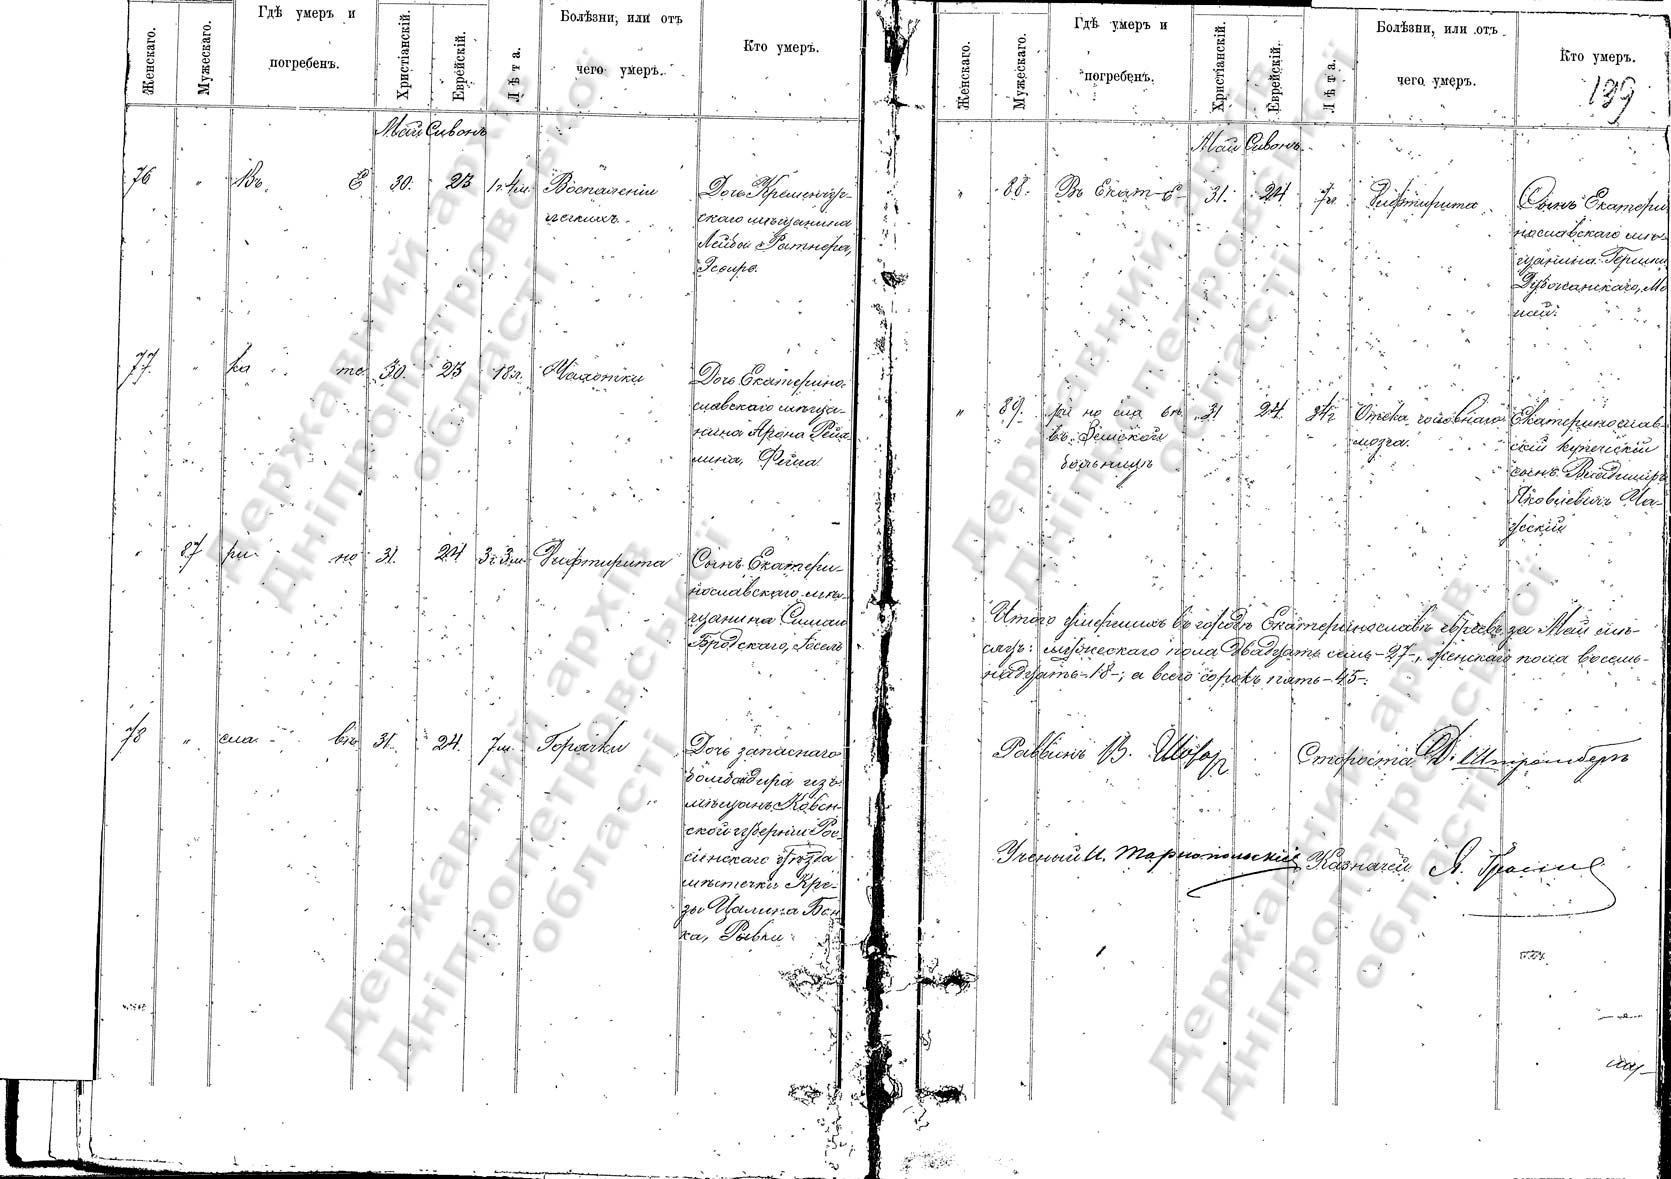 Женскаго.
Мужескаго.
Гдѣ умеръ и
погребенъ.
Христіанскій.
Еврейскій.
Лѣта.
Болѣзни, или отъ
чего умеръ.
Кто умеръ.
Май Сивонъ
76 " Въ Е 30. 23 1г. 4м. Воспаленіи
легкихъ.
Дочь Кременчуг-
скаго мѣщанина
Лейбы Ратнера,
Эсѳирь.
77 " ка те 30. 23 18л. Чахотки
Дочь Екатерино-
славскаго мѣща-
нина Арона
Фейга
" 87 ри но 31. 24 3г. 3м. Дифтерита
Сынъ Екатери-
нославскаго мѣ-
щанина Симхи
Бродскаго, Іосель
78 " сла вѣ 31. 24. 7м. Горячки
Дочь запаснаго
бомбадира изъ
мѣщанъ Ковен-
ской губерніи Рос-
сіенскаго уѣзда
мѣстечка Кро-
жи Цалина
Ривка
Женскаго.
Мужескаго.
Гдѣ умеръ и
погребенъ.
Христіанскій.
Еврейскій.
Лѣта.
Болѣзни, или отъ
чего умеръ.
Кто умеръ.
199
Май Сивонъ
" 88. Въ Екат-е- 31. 24 Дифтирита
Сынъ Екатери
нославскаго мѣ-
щанина Герша
" 89. ри но сла вѣ 31 24. 34г. Отека головнаго
въ Земской мозга.
больницѣ
Екатеринослав-
скій купеческій
сынъ Владиміръ
Яковлевичъ
Итого умершихъ въ городѣ Екатеринославѣ евреевъ за Май мѣ-
сяцъ: мужескаго пола двадцать семь -27-, женскаго пола восем-
надцать -18-; а всего сорокъ пять -45-.
Раввинъ В. Шохоръ Староста Д. Штромбергъ
Ученый И. Тарнопольскій Казначей Я.